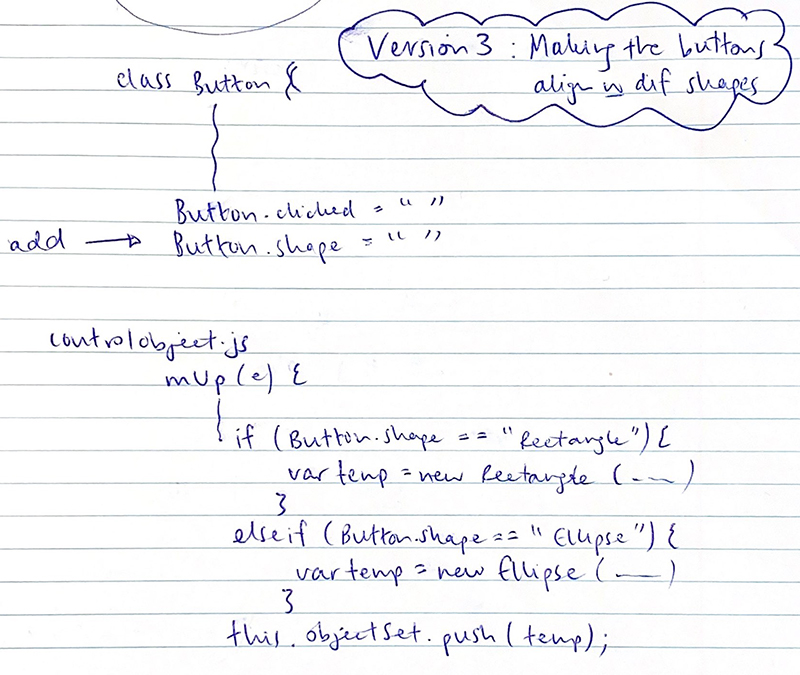 Version 3 : Making the buttons
align in dif shapes
class Button {
Button.clicked = “ ”
add → Button.shape = “ ”
controlobject.js
mUp (e) {
if (Button.shape == "Rectangle") {
var temp = new Rectangle (---)
}
elseif (Button.shape == "Ellipse") {
var temp = new Ellipse (——)
}
this.objectSet.push(temp);